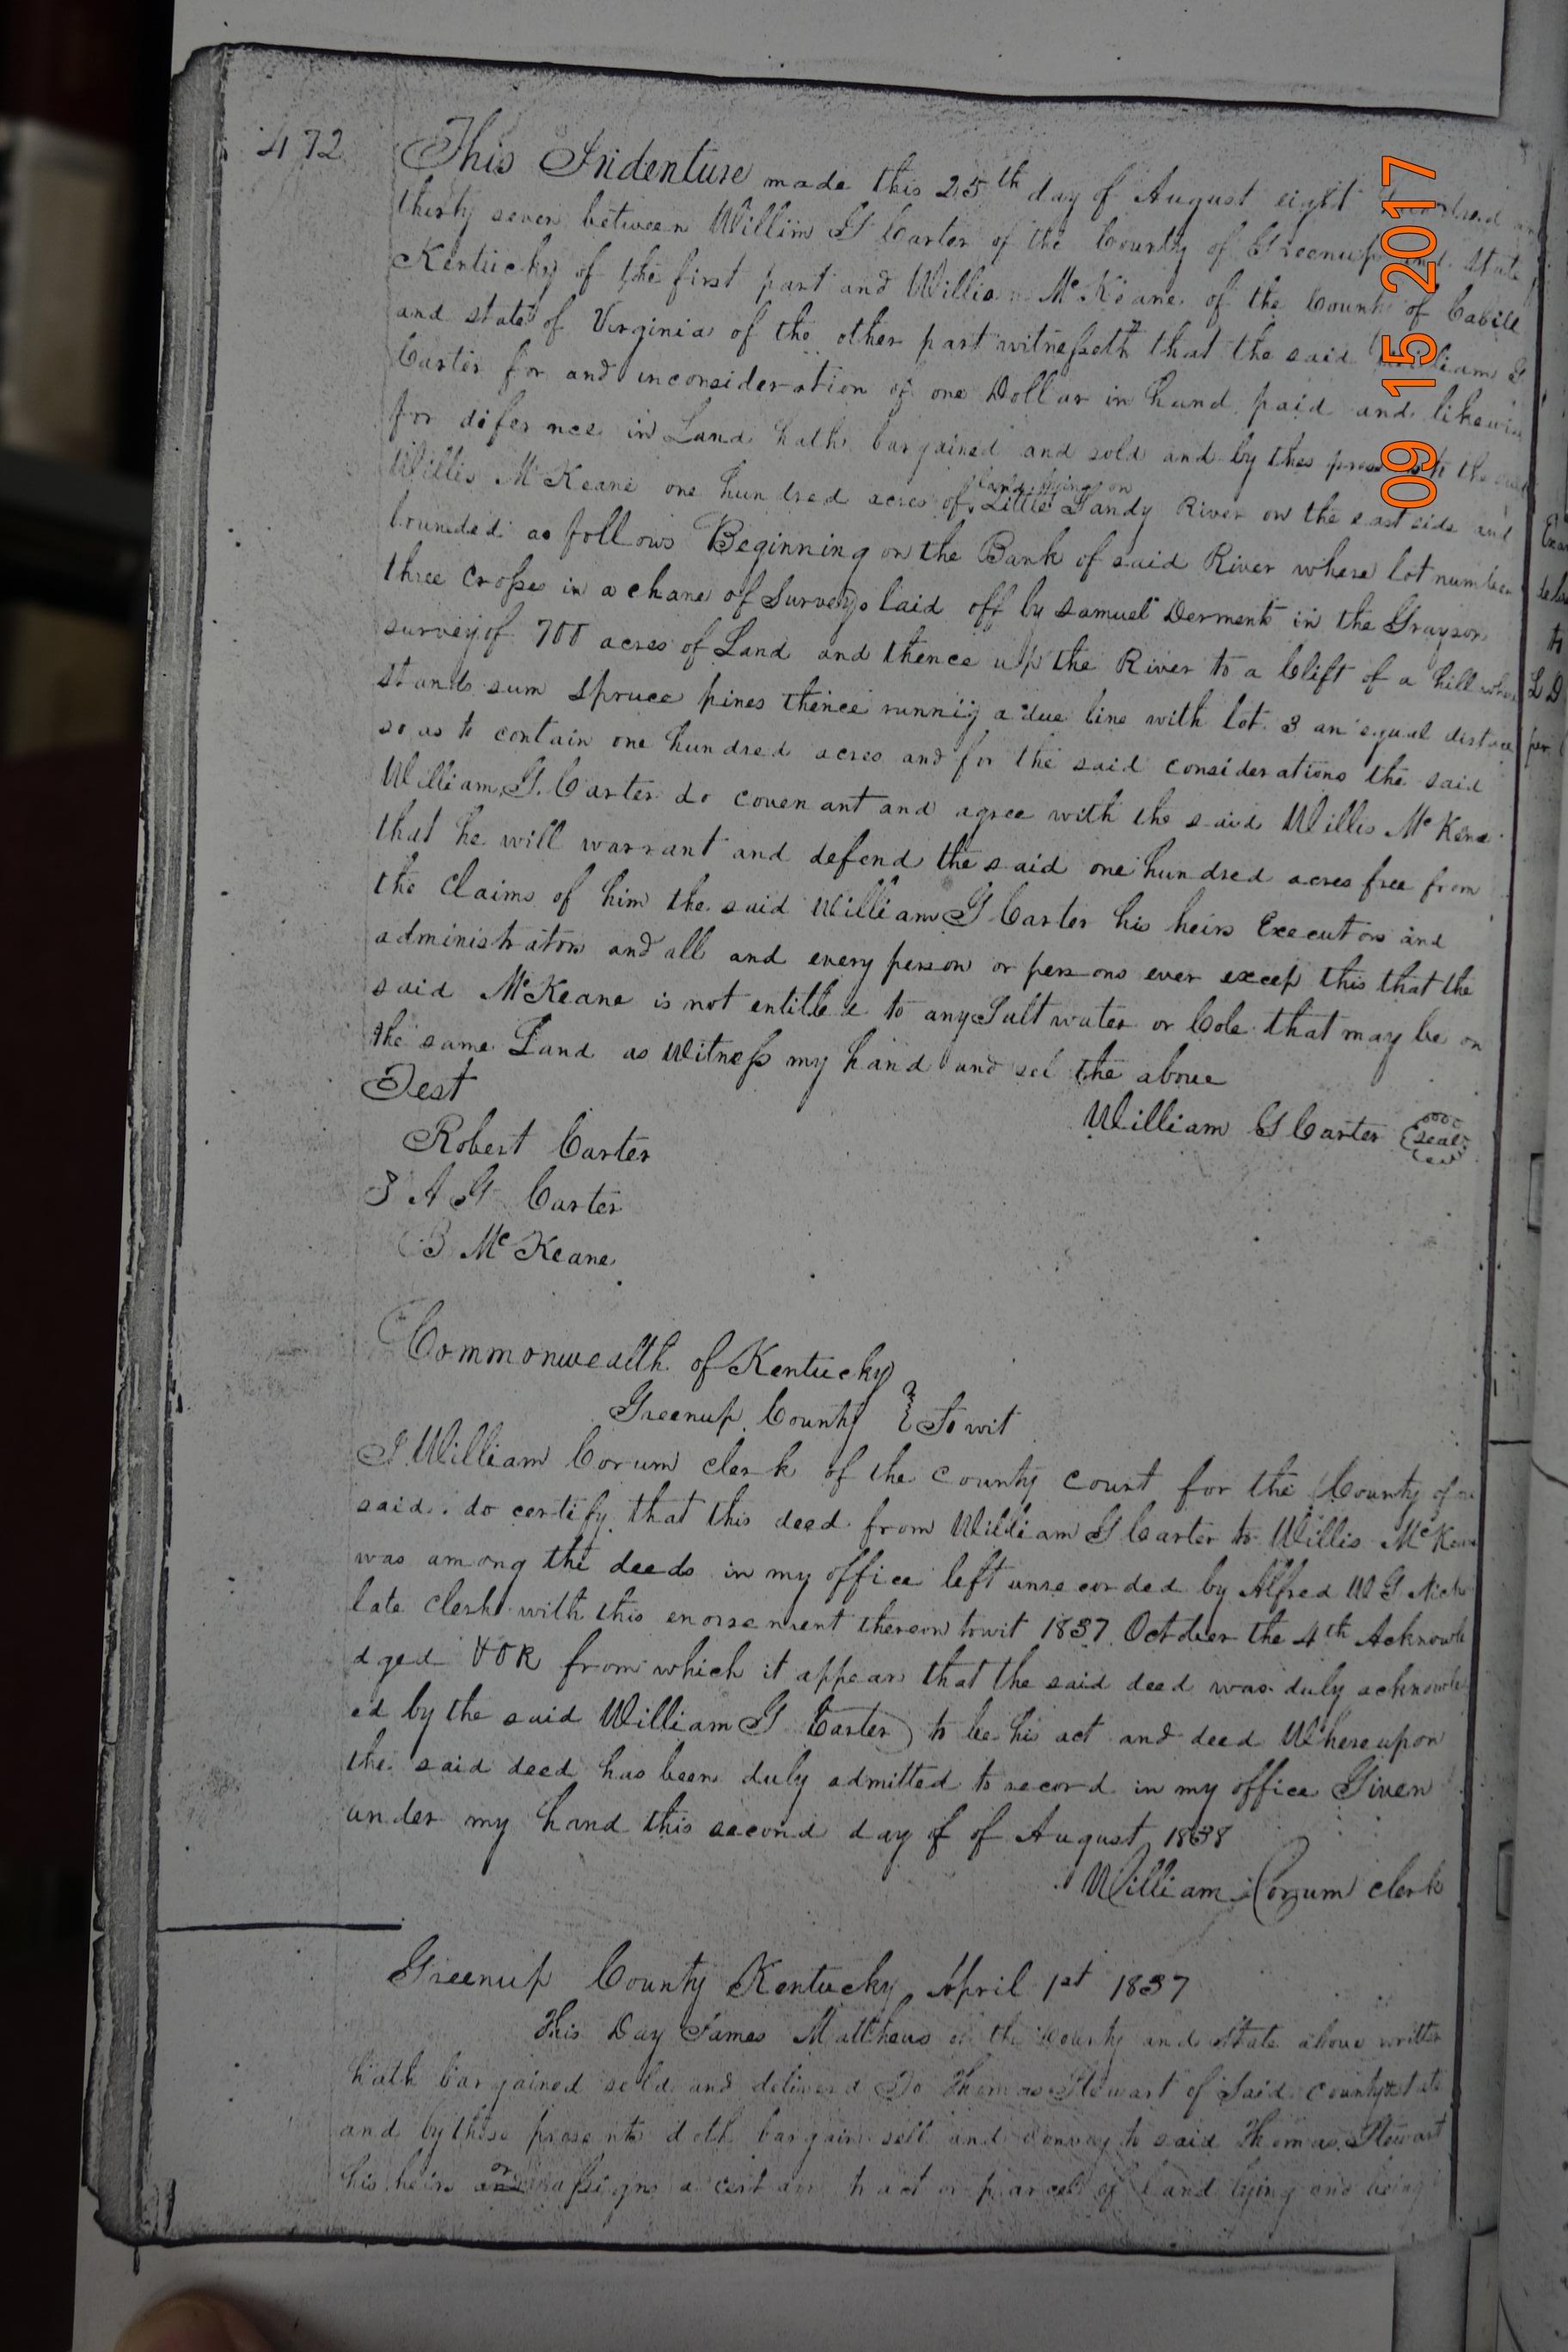 472
This Indenture made this 25th day of August eight hundred and
thirty seven between Willim G Carter of the County of Greenup and State
Kentucky of the first part and Willis McKeane of the County of Cabell
and state of Virginia of the other part witnesseth that the said William G
Carter for and inconsideration of one Dollar in hand paid and likewise
for diference in Land hath bargained and sold and by thes presents the said
Willis McKeane one hundred acres of land lying on Little Sandy River on the east side and
bounded as follows Beginning on the Bank of said River where lot number
three Crosses in a chane of Surveys laid off by Samuel Derment in the Grayson
survey of 700 acres of Land and thence up the River to a Clift of a hill where
stands sum spruce pines thence runnig a due line with lot 3 an equal distace
so as to contain one hundred acres and for the said considerations the said
William G. Carter do covenant and agree with the said Willis McKene
that he will warrant and defend the said one hundred acres free from
the Claims of him the said William G Carter his heirs Executors and
administrators and all and every person or persons ever excep this that the
said McKeane is not entitle to any Salt water or Cole that may be on
the same Land as Witness my hand and sel the above
Test
William G Carter Seal
Robert Carter
A G Carter
B McKeane
Commonwealth of Kentucky
Greenup County } To wit
I William Corum clerk of the county court for the County
said do certify that this deed from William G Carter to Willis McKeane
was among the deeds in my office left unrecorded by Alfred W G Nich
late clerk with this enorsement thereon towit 1837 October the 4th Acknowle
dged &OR from which it appears that the said deed was duly acknowle
ed by the said William G Carter to be his act and deed Whereupon
the said deed has been duly admitted to record in my office Given
under my hand this second day of of August 1838
William Corum clerk
Greenup County Kentucky April 1st 1837
This Day James Mattheus of the County and State above written
hath bargained sold and deliverd To Thomas Stewart of Said county & state
and by these presents doth bargain sell and Convey to said Thomas Stewart
his heirs or assigns a certain tract or parcel of land lying and being
09 15 2017